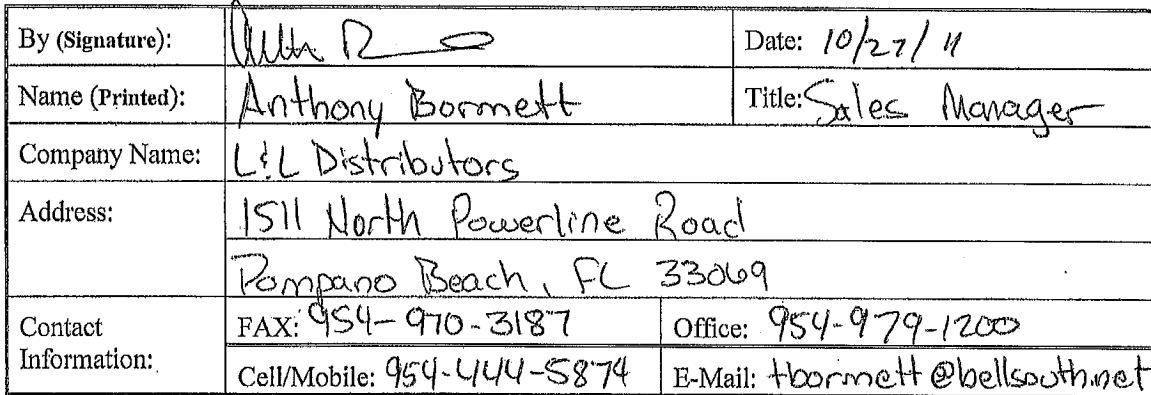 By (Signature): Date: 10/27/11
Name (Printed): Anthony Bormett Title: Sales Manager
Company Name: L&L Distributors
Address: 1511 North Powerline Road
Pompano Beach, FL 33069
Contact Information: FAX: 954-970-3187 Office: 954-979-1200
Cell/Mobile: 954-444-5874 E-Mail: tbormett@bellsouth.net